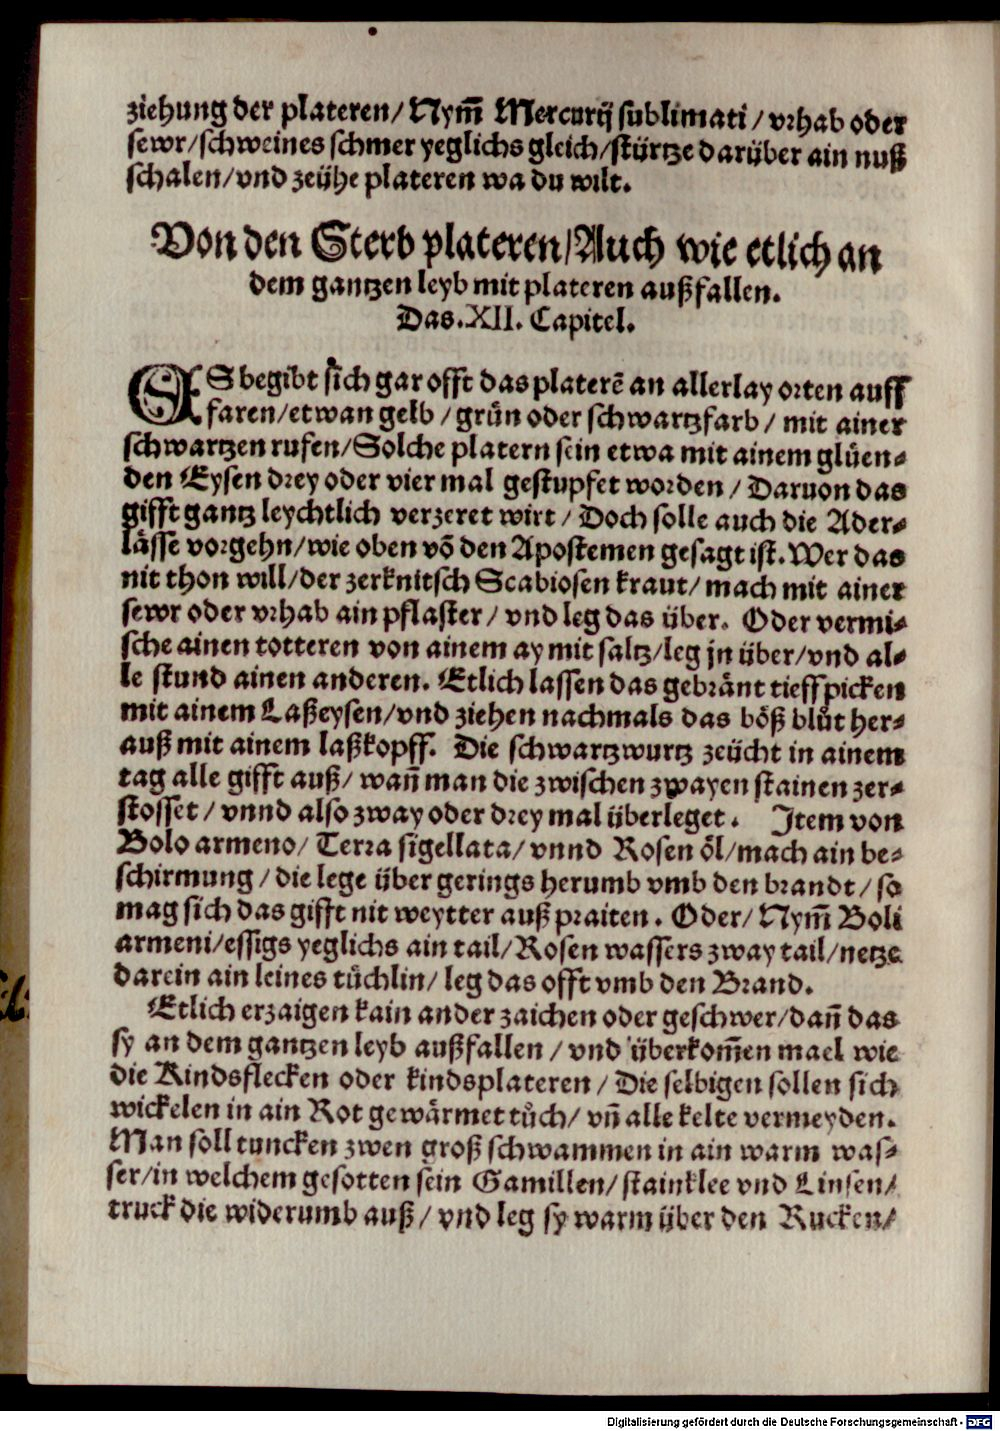 ziehung der plateren/Nym̄ Mercurij sublimati/vrhab oder
sewr/schweines schmer yeglichs gleich/stürtze darüber ain nuß
schalen/vnd zeühe plateren wa du wilt.
Von den Sterb plateren/Auch wie etlich an
dem gantzen leyb mit plateren außfallen.
Das.XII. Capitel.
ES begibt sich gar offt das platerē an allerlay orten auff
faren/etwan gelb/grün oder schwartzfarb/mit ainer
schwartzen rufen/Solche platern sein etwa mit ainem glüen-
den Eysen drey oder vier mal gestupfet worden/Daruon das
gifft gantz leychtlich verzeret wirt/Doch solle auch die Ader-
lässe vorgehn/wie oben vō den Apostemen gesagt ist. Wer das
nit thon will/der zerknitsch Scabiosen kraut/mach mit ainer
sewr oder vrhab ain pflaster/vnd leg das über. Oder vermi-
sche ainen totteren von ainem ay mit saltz/leg jn über/vnd al-
le stund ainen anderen. Etlich lassen das gebränt tieff picken
mit ainem Laßeysen/vnd ziehen nachmals das böß blůt her-
auß mit ainem laßkopff. Die schwartzwurtz zeücht in ainem
tag alle gifft auß/wan̄ man die zwischen zwayen stainen zer-
stosset/vnnd also zway oder drey mal überleget. Item von
Bolo armeno/Terra sigellata/vnnd Rosen öl/mach ain be-
schirmung/die lege über gerings herumb vmb den brandt/so
mag sich das gifft nit weytter auß praiten. Oder/Nym̄ Boli
armeni/essigs yeglichs ain tail/Rosen wassers zway tail/netze
darein ain leines tůchlin/leg das offt vmb den Brand.
Etlich erzaigen kain ander zaichen oder geschwer/dan̄ das
sy an dem gantzen leyb außfallen/vnd überkom̄en mael wie
die Rindsflecken oder kindsplateren/Die selbigen sollen sich
wickelen in ain Rot gewärmet tůch/vn̄ alle kelte vermeyden.
Man soll tuncken zwen groß schwammen in ain warm was-
ser/in welchem gesotten sein Gamillen/stainklee vnd Linsen/
truck die widerumb auß/vnd leg sy warm über den Rucken/
Digitalisierung gefördert durch die Deutsche Forschungsgemeinschaft - DFG